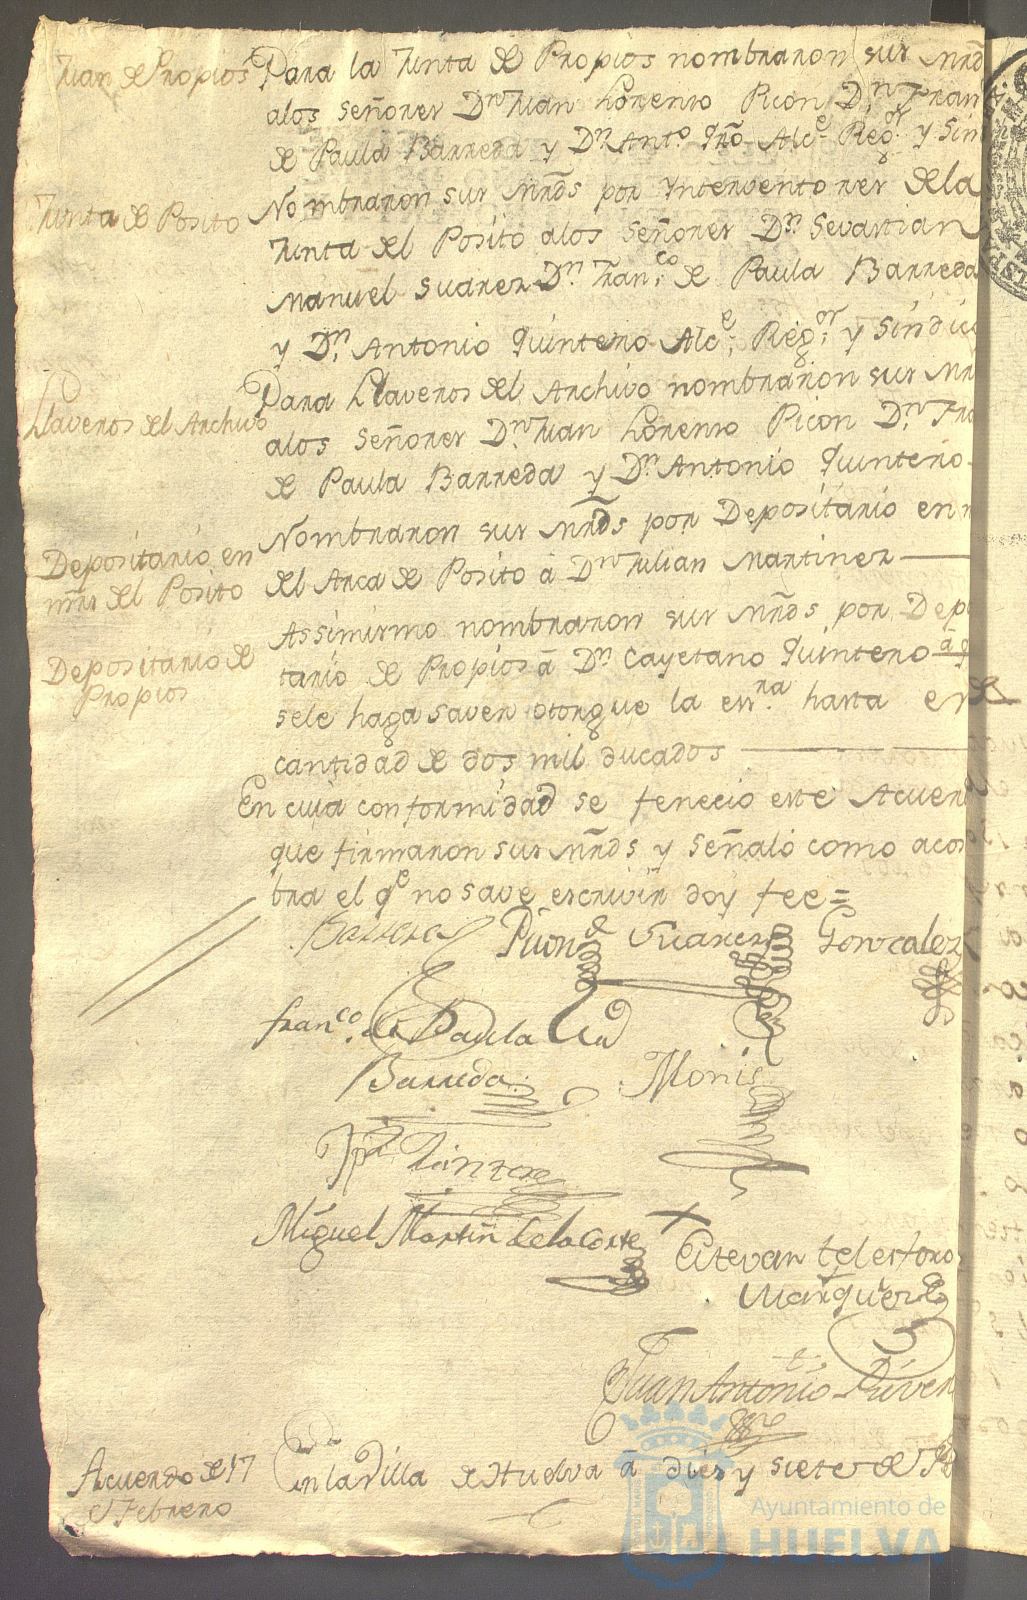 Juan de Propios
Para la Junta de Propios nombraron sus Mrds
alos Señores Dn Juan Lorenso Picon Dn Fran
de Paula Barreda y Dn Anto Qro Alce Regor y Sin
Junta de Posito
Nombraron sus Mrds por Ynterventores dela
Junta del Posito alos Señores Dn Sevastian
Manuel Suarez Dn Franco de Paula Barreda
y Dn Antonio Quintero Alce Regor y Sindico
Llaveros del Archivo
Para Llaveros del Archivo nombraron sus Mr
alos Señores Dn Juan Lorenso Picon Dn Fra
de Paula Barreda y Dn Antonio Quintero
Depositario en
mrs del Posito
Nombraron sus Mrds por Depositario en
del Arca de Posito á Dn Julian Martinez
Depositario de
Propios
Assimismo nombraron sus Mrds por Depo
tario de Propios á Dn Cayetano Quintero á q
sele haga saver otorgue la essra hasta en
cantidad de dos mil ducados
En cuia conformidad se fenecio este Acuer
que firmaron sus Mrds y Señaló como acos
bra el qe no save escrivir doy fee =
Barrera Picon Suarez Gonzalez
Franco de Paula
Barreda Monis
Quintero
Miguel Martin dela Corte
Estevan telesforo
Marquez
Juan Antonio
Acuerdo de 17
de Febrero
En la Villa de Huelva á diez y siete de Fe
Ayuntamiento de
HUELVA